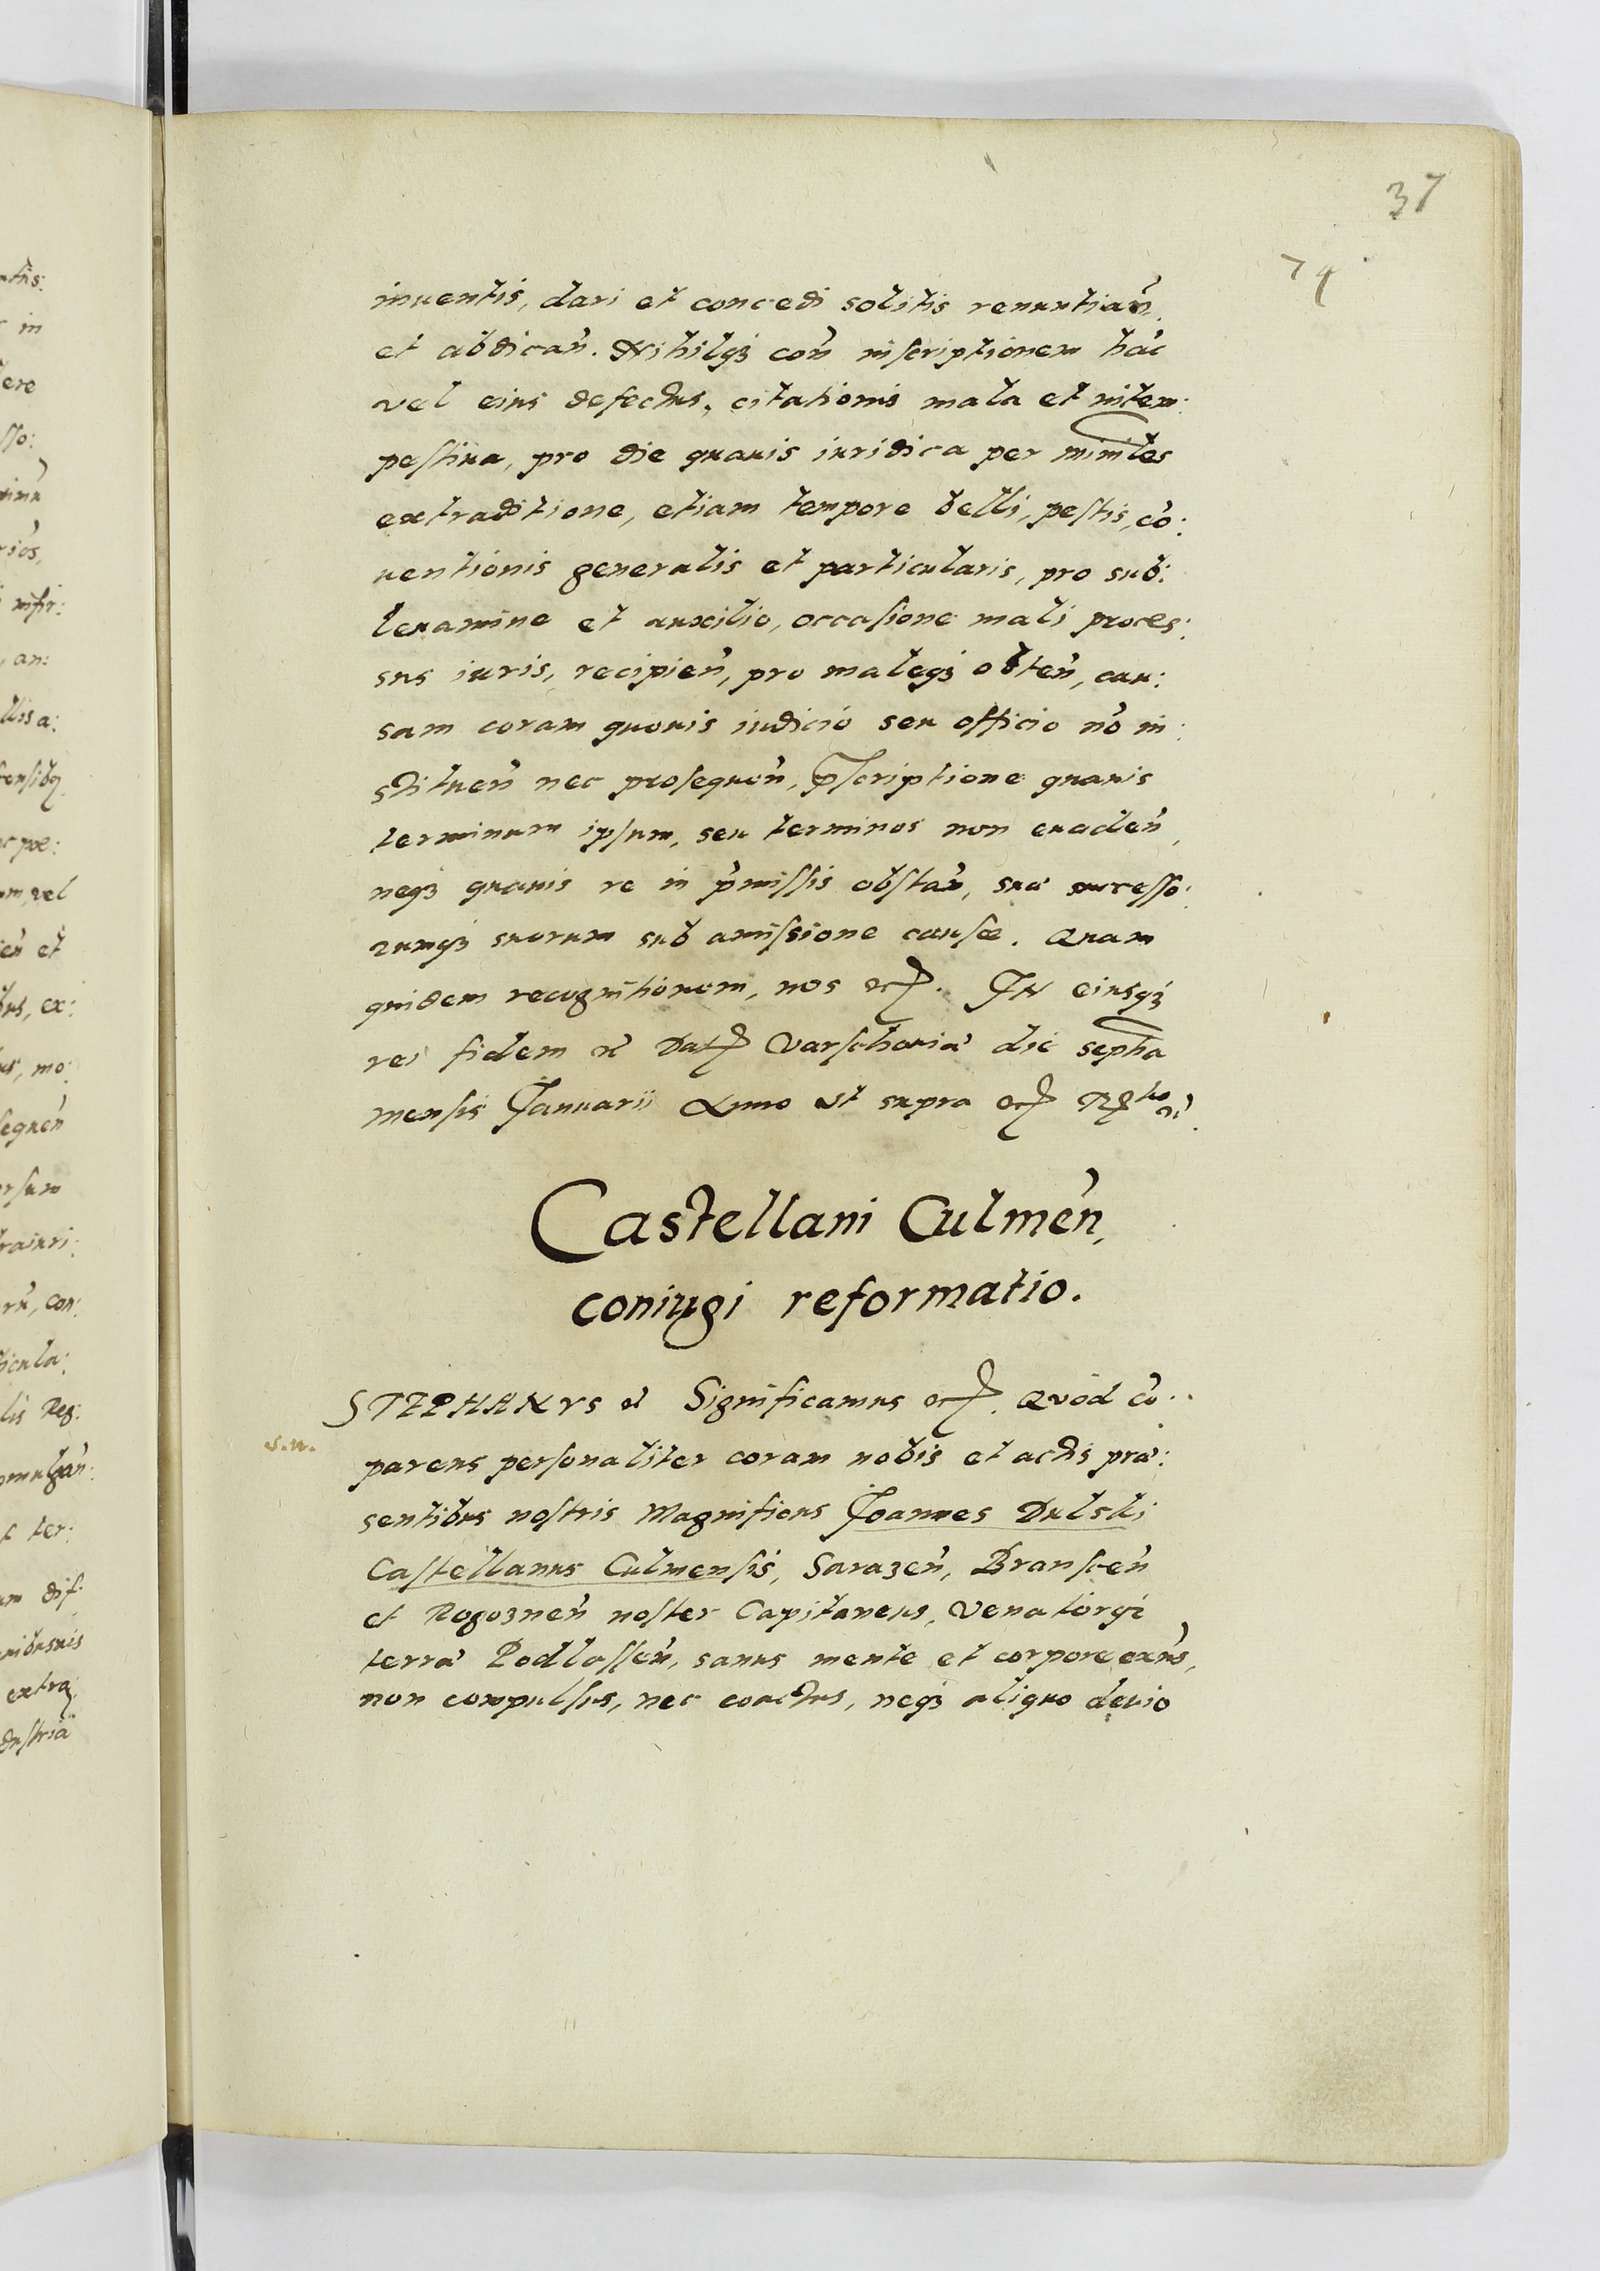 37
74
inuentis, dari et concedi solitis renuntian̄.
et abdican̄. Nihilqꝫ con̄ inscriptionem hāc
vel eius defectus, citationis mala et intem:
pestiua, pro die quauis iuridica per minītes
extraditione, etiam tempore belli, pestis, cō:
uentionis generalis et particularis, pro sub:
leuamine et auxilio, occasione mali proces:
sus iuris, recipien̄, pro maleqꝫ obten̄, cau:
sam coram quouis iudicio seu officio nō in:
stituen̄ nec prosequen̄, p̄scriptione quauis
terminum ipsum, seu terminos non euaden̄,
neqꝫ quauis re in p̄missis obstan̄, sua successo:
rumqꝫ suorum sub amissione causæ. Quam
quidem recognitionem, nos etc. In eiusqꝫ
rei fidem etc Dat Varschouiæ die sep̄tia
mensis Januarii Anno ut supra etc
Castellani Culmen̄,
coniugi reformatio.
STEPHANVS etc Significamus etc. Quod cō:
parens personaliter coram nobis et actis præ:
sentibus nostris Magnificus Joannes Dulski
Castellanus Culmensis, Surazen̄, Branscen̄
et Rogoznen̄ noster Capitaneus, Venatorqꝫ
terræ Podlassen̄, sanus mente et corpore exn̄s,
non compulsus, nec coactus, neqꝫ aliquo deuio
ntis:
in
ere
an:
vel
et
ex:
mo:
con:
Reg:
ter:
dif:
extra